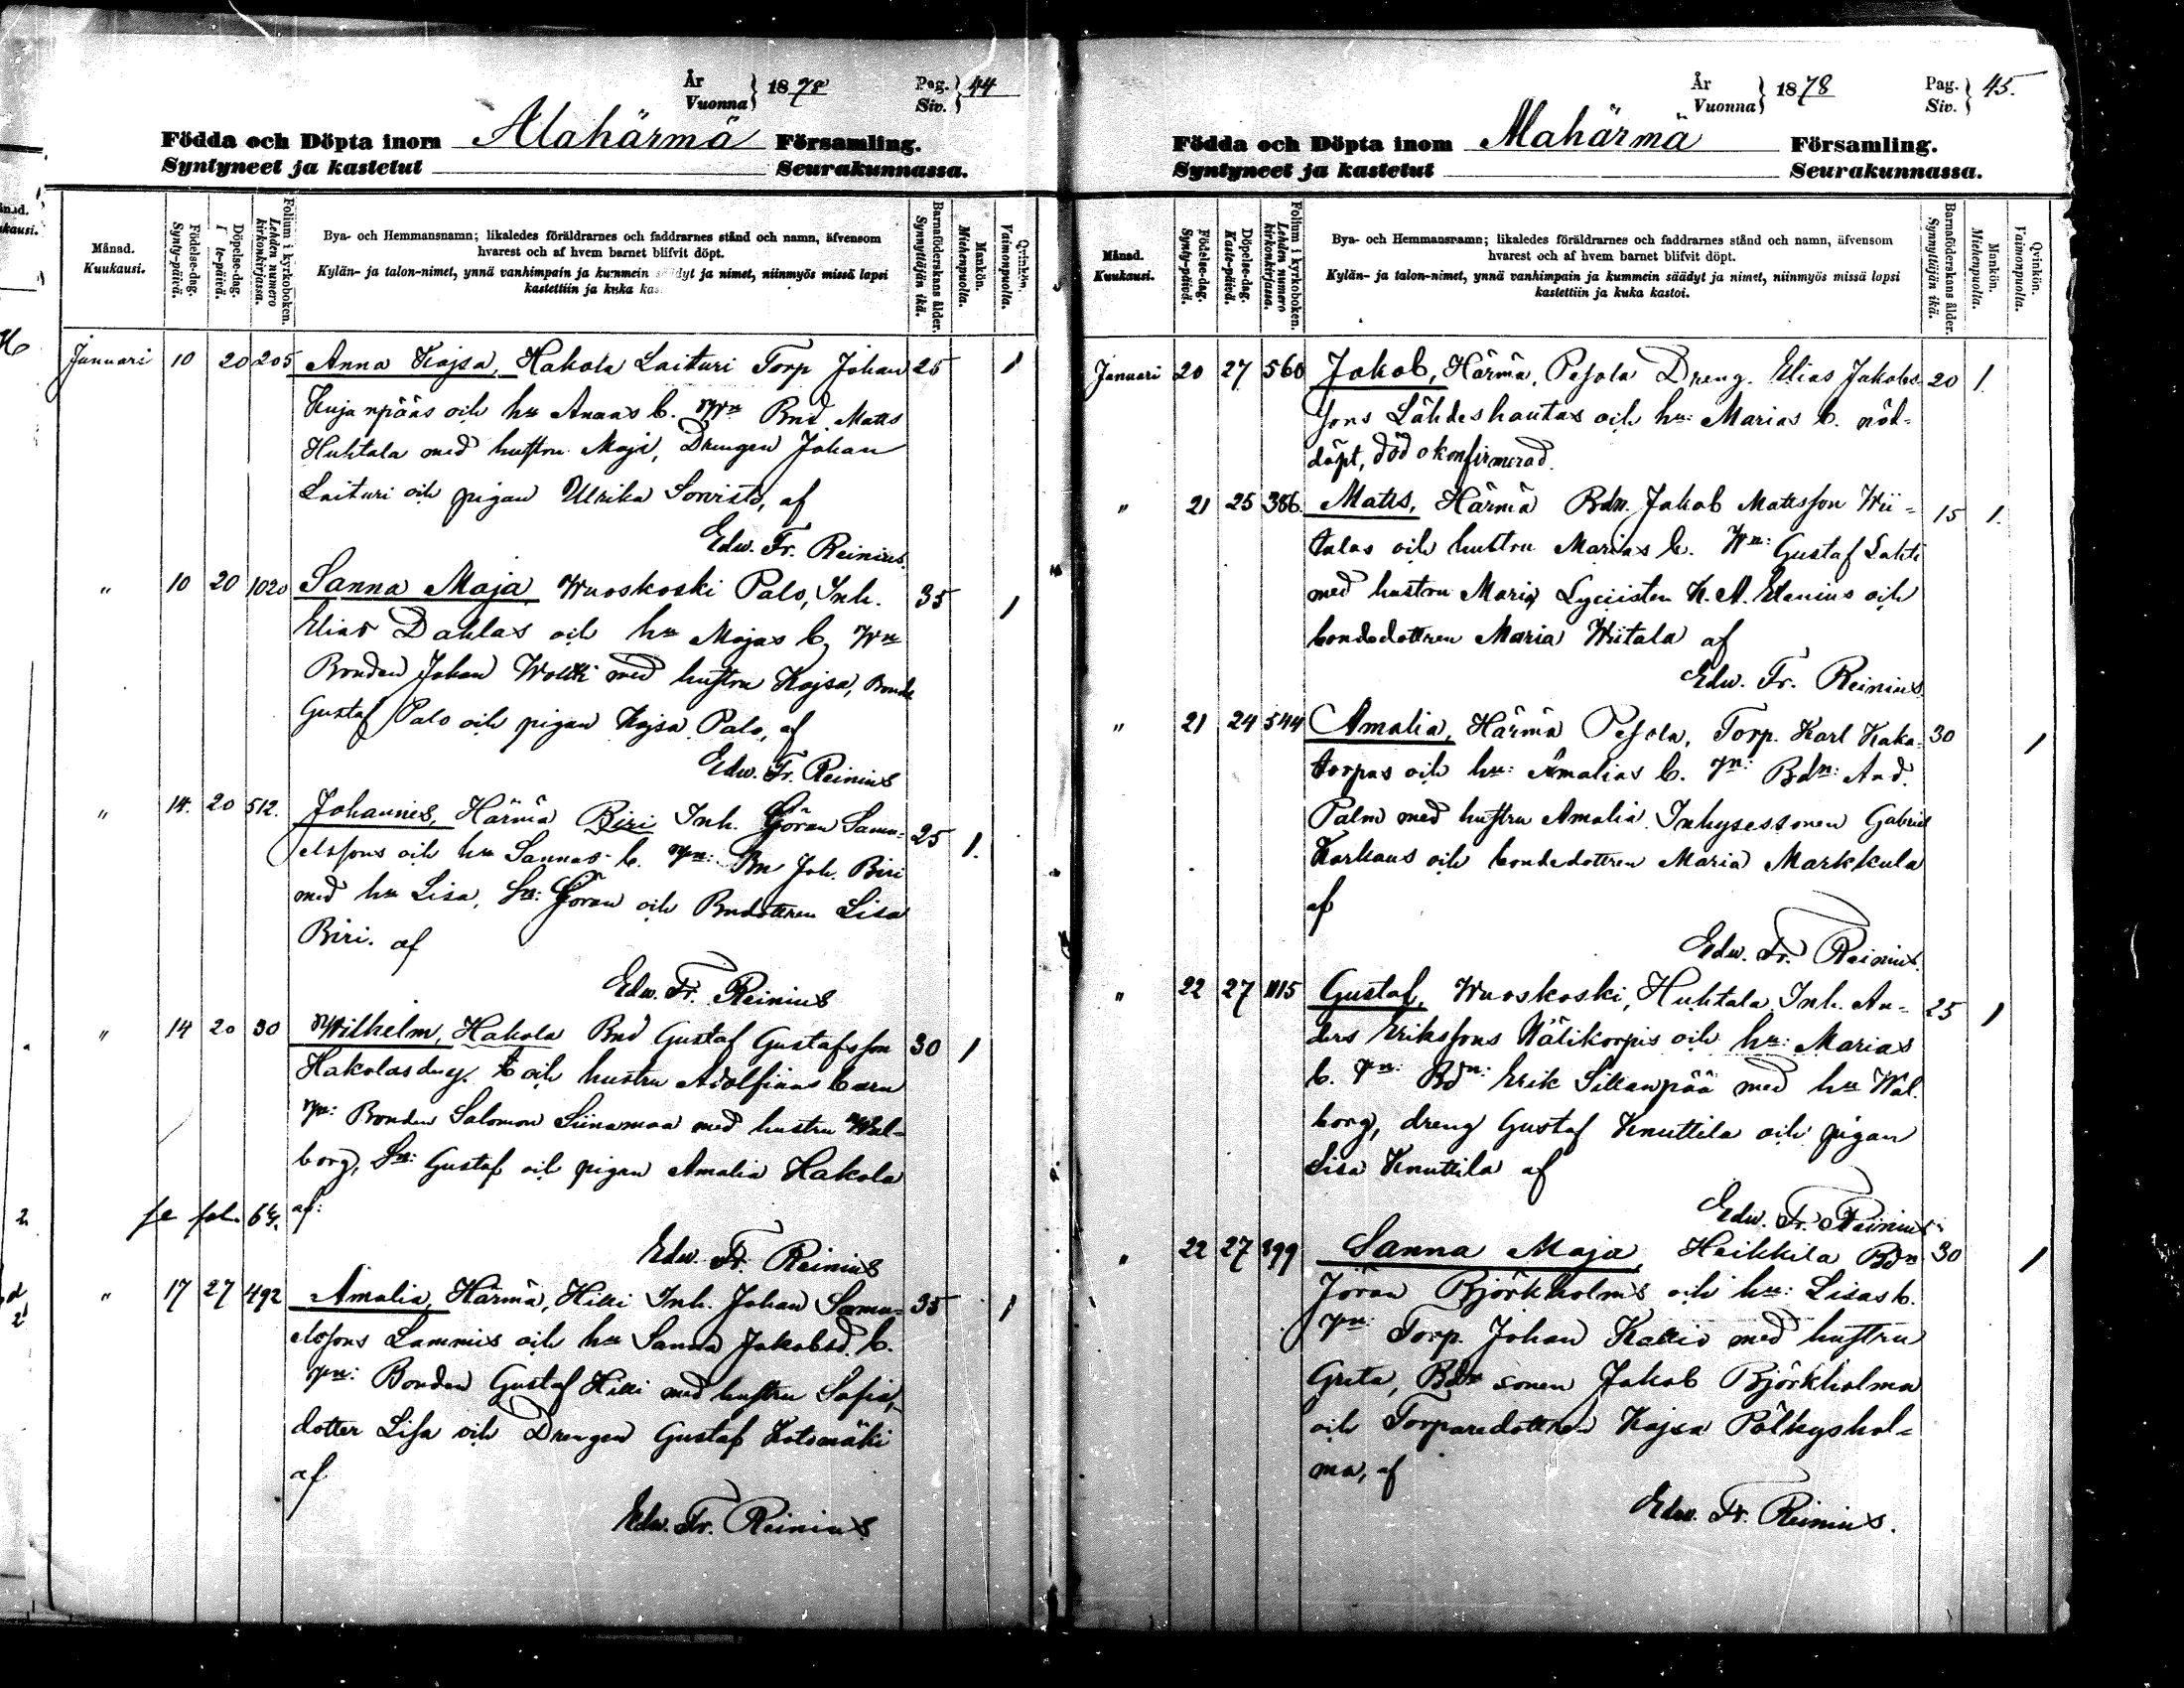 År
Vuonna
1878
Pag.
Siv.
44
Födda och Döpta inom Alahärmä Församling.
Syntyneet ja kastetut Seurakunnassa.
Månad.
Kuukausi.
Födelse-dag.
Synty-päivä.
Döpelse-dag.
Folium i kyrkoboken.
Lehden numero
kirkonkirjassa.
Bya- och Hemmansnamn; likaledes föräldrarnes och faddrarnes stånd och namn, äfvensom
hvarest och af hvem barnet blifvit döpt.
Kylän- ja talon-nimet, ynnä vanhimpain ja kummein säädyt ja nimet, niinmyös missä lapsi
kastettiin ja kuka kas
Barnaföderskans ålder.
Synnyttäjän ikä.
Mankön.
Miehenpuolta.
Qvinkön.
Vaimonpuolta.
Januari 10 20 205 Anna Kajsa, Hakola Laituri Torp Johan 25 1
Kujanpääs och hu Annas b. Wn Bnd. Matts
Huhtala med hustru Maja, Drengen Johan
Laituri och pigan Ulrika Sorvisto, af
Edw. Fr. Reinius.
" 10 20 1020 Sanna Maja Wuoskoski Palo, Inh. 35 1
Elias Dahlas och hu Majas b, Wn
Bonden Johan med hustru Kajsa, Bonde
Gustaf Palo och pigan Kajsa Palo, af
Edw. Fr. Reinius
" 14. 20 512. Johannes, Härmä Biri Inh. Göran Samu= 25 1.
elssons och hu Sannas b. Wn: Bn Joh. Biri
med hu Lisa, Sn: Göran och Bndottren Lisa
Biri. af
Edw. Fr. Reinius
" 14 20 30 Wilhelm, Hakola Bnd Gustaf Gustafsson 30 1
Hakolas och hustru Adolfinas barn
Wn: Bonden Salomon Siinamaa med hustru Wal=
borg, Sn: Gustaf och pigan Amalia Hakola
af:
Edw. Fr. Reinius
" 17 27 492 Amalia, Härmä, Hilli Inh. Johan Samu= 35 1
elssons Lammis och hu Sanna Jakobsd. b.
Wn: Bonden Gustaf Hilli med hustru Sofia,
dotter Lisa och Drengen Gustaf Kotomäki
af
Edw. Fr. Reinius
År
Vuonna
1878
Pag.
Siv.
45.
Födda och Döpta inom Alahärmä Församling.
Syntyneet ja kastetut Seurakunnassa.
Månad.
Kuukausi.
Födelse-dag.
Synty-päivä.
Döpelse-dag.
Kaste-päivä.
Folium i kyrkoboken.
Lehden numero
kirkonkirjassa.
Bya- och Hemmansnamn; likaledes föräldrarnes och faddrarnes stånd och namn, äfvensom
hvarest och af hvem barnet blifvit döpt.
Kylän- ja talon-nimet, ynnä vanhimpain ja kummein säädyt ja nimet, niinmyös missä lapsi
kastettiin ja kuka kastoi.
Barnaföderskans ålder.
Synnyttäjän ikä.
Mankön.
Miehenpuolta.
Qvinkön.
Vaimonpuolta.
Januari 20 27 560 Jakob, Härmä, Pesola Dreng. Elias Jakobs 20 1.
sons Lähdeshautas och hu: Marias b. nöd=
döpt, död okonfirmerad.
" 21 25 386. Matts, Härmä Bdn. Jakob Mattsson Wii= 15 1.
talas och hustru Marias b. Wn: Gustaf Lahti
med hustru Maria Lyceisten K. A. Elenius och
bondedottren Maria Wiitala af
Edw. Fr. Reinius.
" 21 24 544 Amalia, Härmä Pesola, Torp. Karl Kaka= 30 1
torpas och hu: Amalias b. Wn: Bdn: And.
Palm med hustru Amalia Inhysessonen Gabriel
Karhaus och bondedottren Maria Markkula
af
Edw. Fr. Reinius.
" 22 27 1115 Gustaf, Wuoskoski, Huhtala, Inh. An= 25 1
ders Erikssons Wälikorpis och hu: Marias
b. Wn: Bdn: Erik Sillanpää med hu Wal
borg, dreng Gustaf Knuttila och pigan
Lisa Knuttila af
Edw. Fr. Reinius
" 22 27 899 Sanna Maja, Heikkilä Bdn 30 1
Jöran Björkholms och hu: Lisas b.
Wn: Torp. Johan Kallio med hustru
Greta, Bdn sonen Jakob Björkholma
och Torparedottren Kajsa Pölkyshol=
ma, af
Edw. Fr. Reinius.